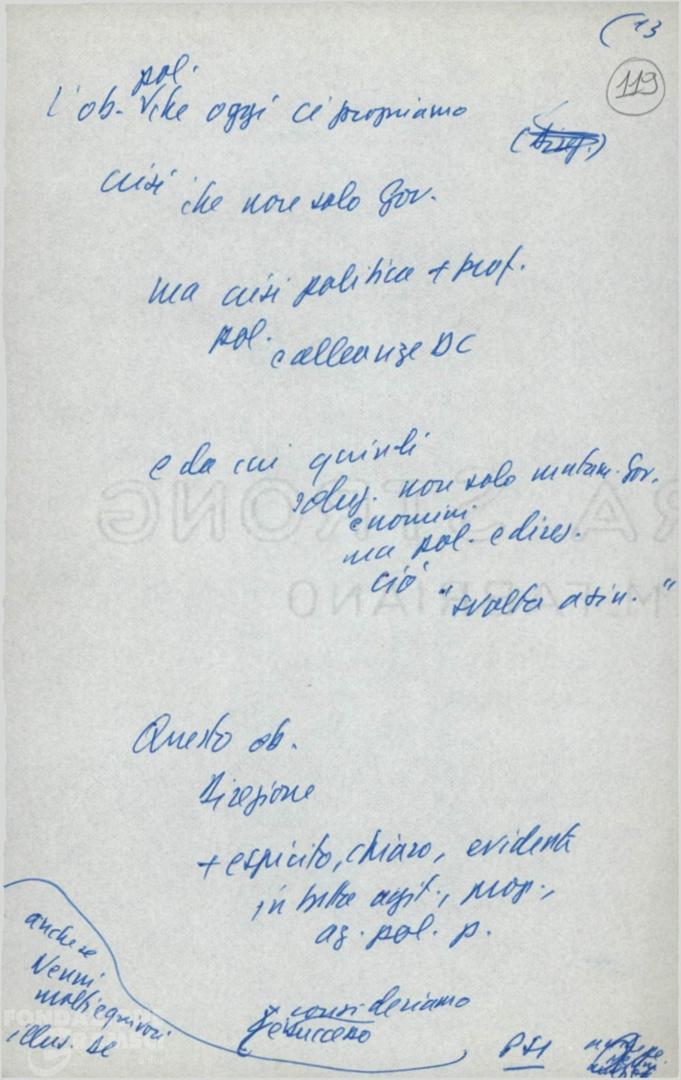 ( 13
119
pol.
l'ob. che oggi ci proponiamo
(Direz.)
crisi che non solo Gov.
ma crisi politica + prof.
pol.
e alleanze DC
e da cui quindi
soluz. non solo mutam. Gov.
e nomini
ma pol. e direz.
ciò
"svolta a sin."
Questo ob.
Direzione
+ espicito, chiaro, evidente
in tutta agit., prop.,
az. pol. p.
anche se
Nenni
molti equivoci
illus. se
consideriamo
successo
PSI